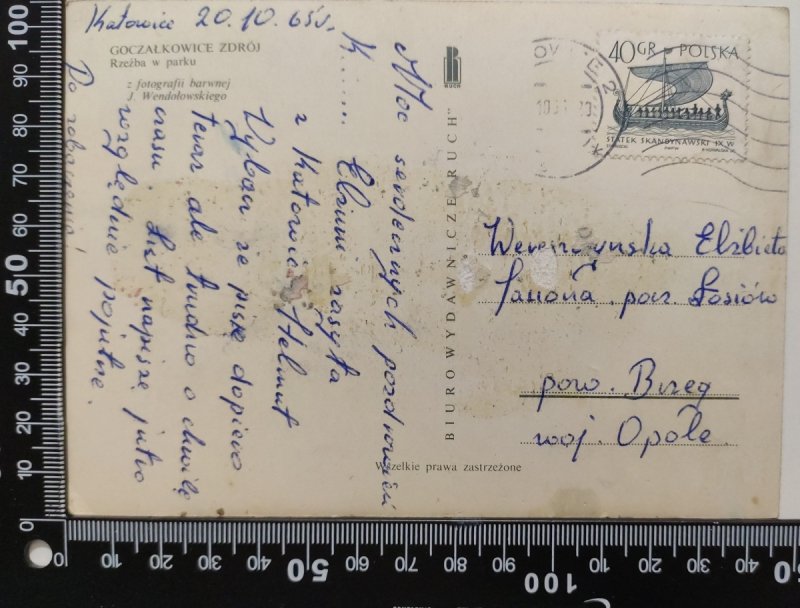 Katowice 20.10.65r.
GOCZAŁKOWICE ZDRÓJ
Rzeźba w parku
z fotografii barwnej
J. Wendołowskiego
K......
Moc serdecznych pozdrowień
Elżuni zasyła
z Katowic Helmut
Wybacz że piszę dopiero
teraz ale trudno o chwilę
czasu. List napiszę jutro
względnie pojutrze.
Do zobaczenia!
BIURO WYDAWNICZE „RUCH”
RUCH
40 GR POLSKA
STATEK SKANDYNAWSKI IX W.
Elżbieta
Janona, pocz. Łosiów
pow. Brzeg
woj. Opole
Wszelkie prawa zastrzeżone
0 10 20 30 40 50 60 70 80 90 100
0 10 20 30 40 50 60 70 80 90 100